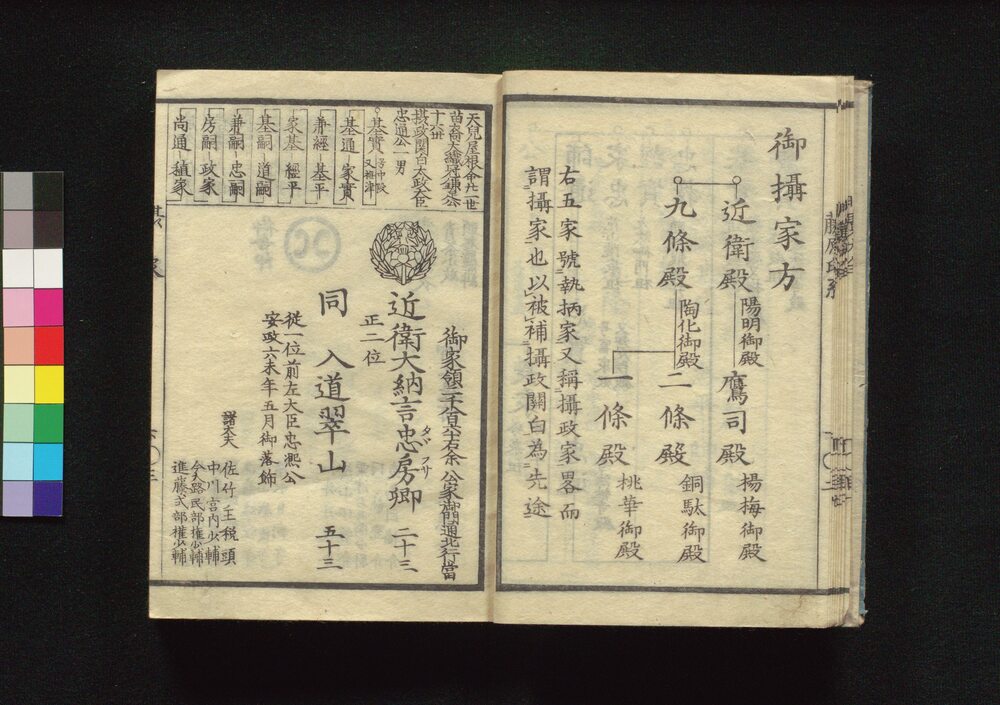 御攝家方
近衛殿 陽明御殿
鷹司殿 揚梅御殿
九條殿 陶化御殿
二條殿 銅駄御殿
一條殿 桃華御殿
右五家號執柄家又稱攝政家畧而
謂攝家也以被補攝政關白為先途
天兒屋根命廿一世
苗裔大織冠鎌足公
十六世
摂政関白太政大臣
忠通公一男
基實 号中殿 又梅津
基通 家實
兼經 基平
家基 經平
基嗣 道嗣
兼嗣 忠嗣
房嗣 政家
尚通 稙家
御家領二千八百六十石余 公家御門通北行當
近衛大納言忠房卿 二十三
タヾフサ
正二位
同 入道翠山 五十三
従一位前左大臣忠凞公
安政六未年五月御落飾
諸大夫
佐竹主税頭
中川宮内少輔
今大路民部権少輔
進藤式部権少輔